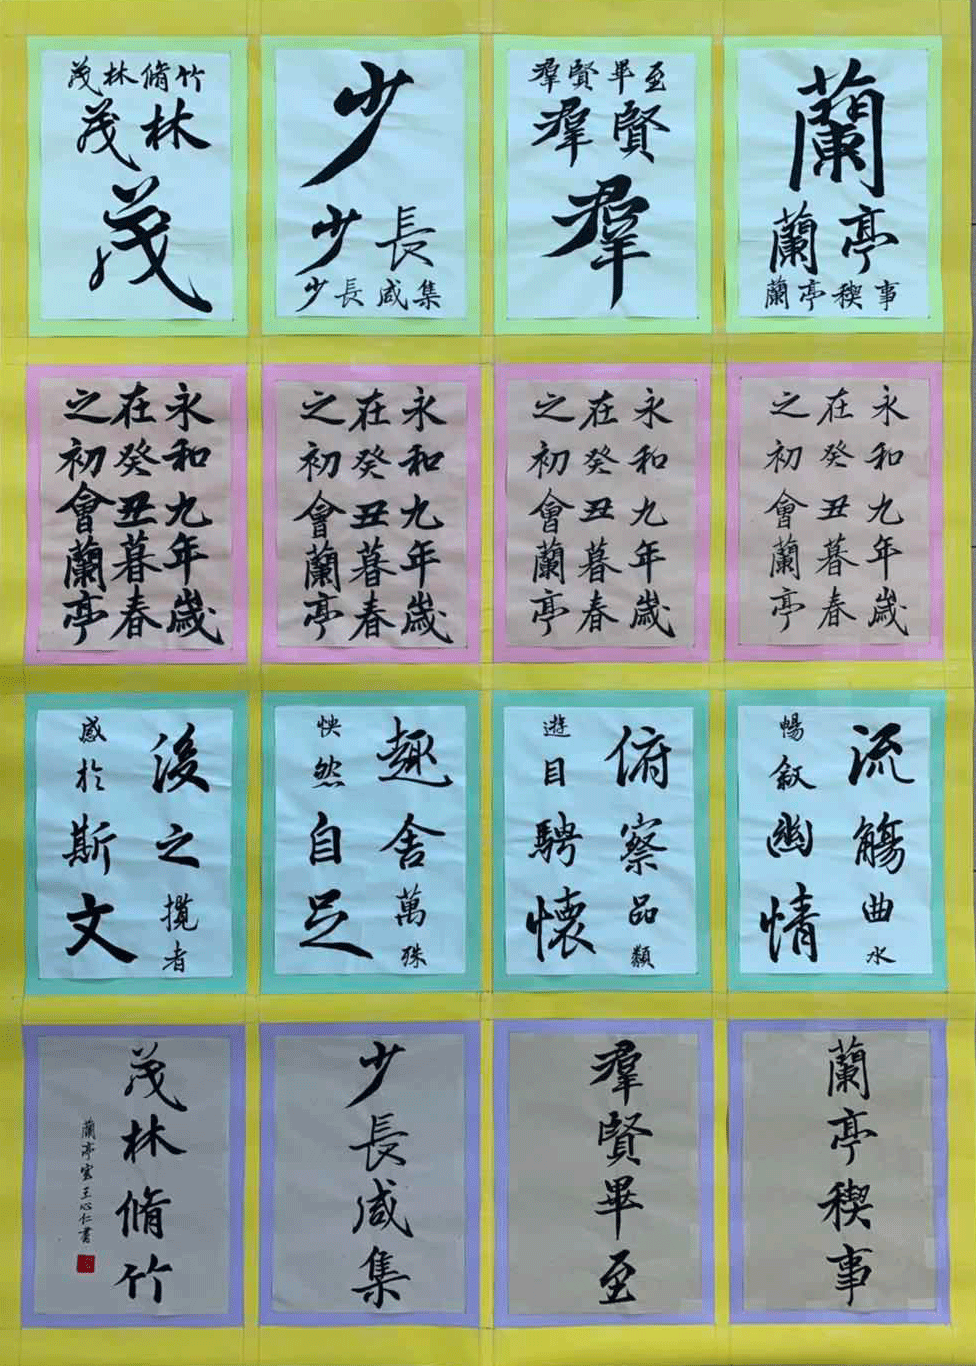 蘭
蘭亭
蘭亭稧事
羣賢畢至
羣賢
羣
少
少長
少長咸集
茂林脩竹
茂林
茂
永和九年歲
在癸丑暮春
之初會蘭亭
永和九年歲
在癸丑暮春
之初會蘭亭
永和九年歲
在癸丑暮春
之初會蘭亭
永和九年歲
在癸丑暮春
之初會蘭亭
流觴曲水
暢叙幽情
俯察品類
遊目騁懷
趣舍萬殊
怏然自足
後之攬者
感於斯文
蘭亭稧事
羣賢畢至
少長咸集
茂林脩竹
蘭亭 王心仁書